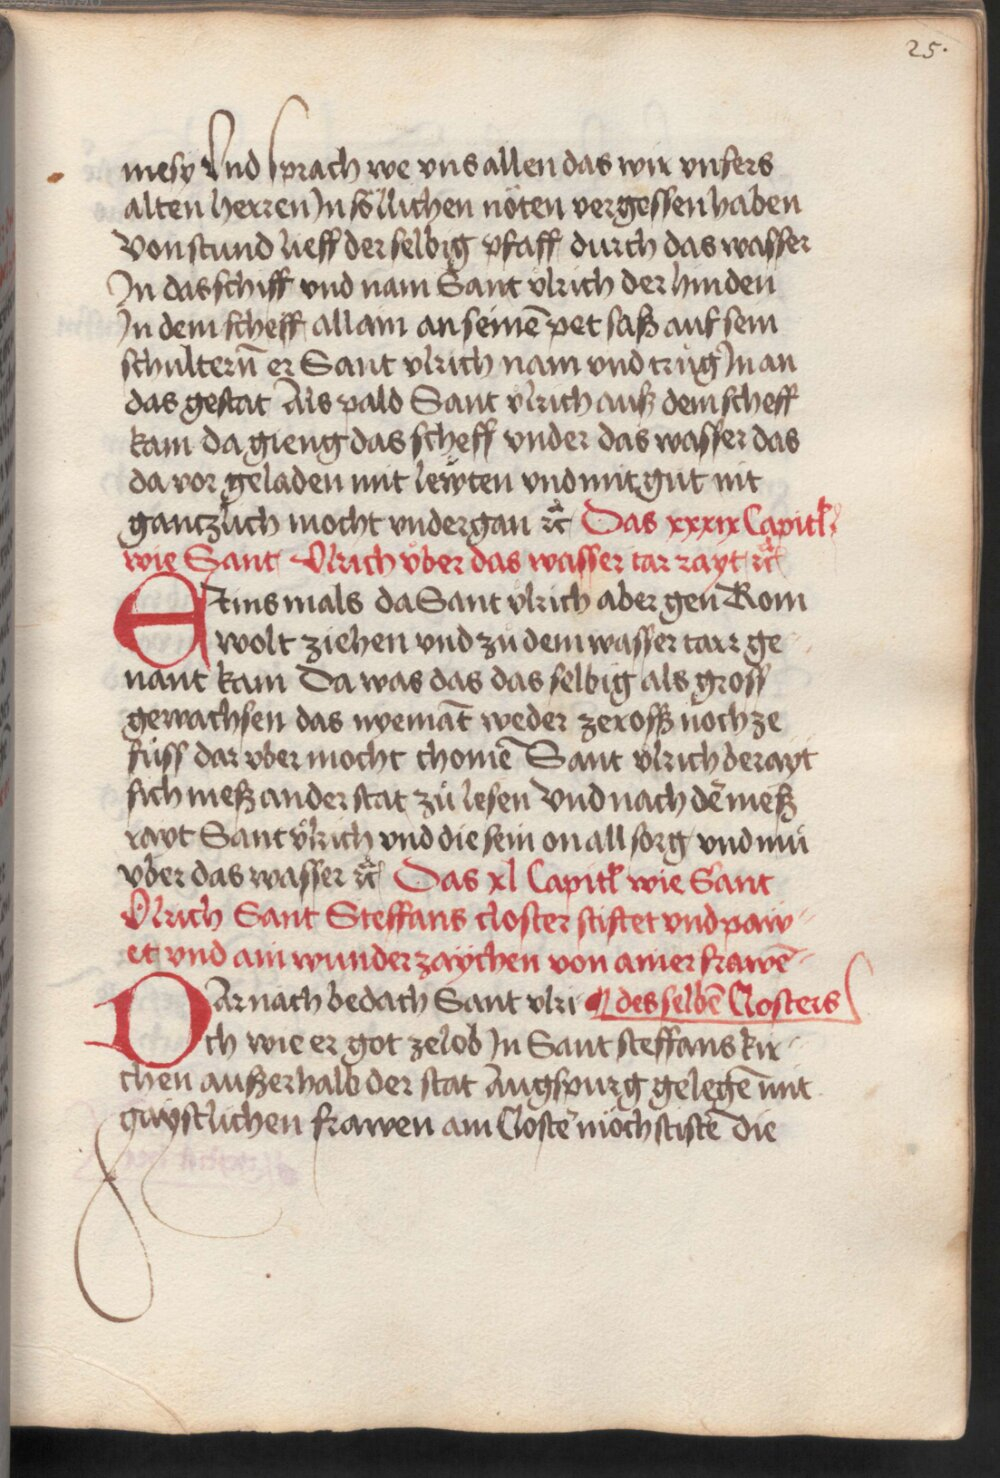 25.
mesv Vnd sprach we vns allen das wir vnsers
alten herren In söllichen nöten vergessen haben
Von stund lieff der selbig pfaff durch das wasser
In das schiff vnd nam Sant vlrich der hinden
In dem scheff allain an seinē pet saß auf sein
schulterñ er Sant vlrich nam vnd trůg In an
das gestat Als pald Sant vlrich auß dem scheff
kam da gieng das scheff vnder das wasser das
da vor geladen mit lewten vnd mit gut nit
gantzlich mocht vndergan ꝛc Das xxxix Capitl
wie Sant Vlrich vber das wasser tar rayt ꝛc
Eins mals da Sant vlrich aber gen Rom
wolt ziehen vnd zů dem wasser tarr ge-
nant kam Da was das das selbig als gross
gewachsen das nyemāt weder ze ross noch ze
fůss dar vber mocht chomē Sant vlrich berayt
sich meß an der stat zů lesen Vnd nach dē meß
rayt Sant vlrich vnd die sein on all sorg vnd mü
vber das wasser ꝛc Das xl Capitl wie Sant
Vlrich Sant Steffans closter stiftet vnd paw-
et vnd ain wunderzaychen von ainer frawē-
DArnach bedach Sant vlri ¶ des selbē Closters
ch wie er got ze lob In Sant steffans kir-
chen außerhalb der stat Augspurg gelegē mit
gaystlichen frawen ain Closte͛ möch stiftē die